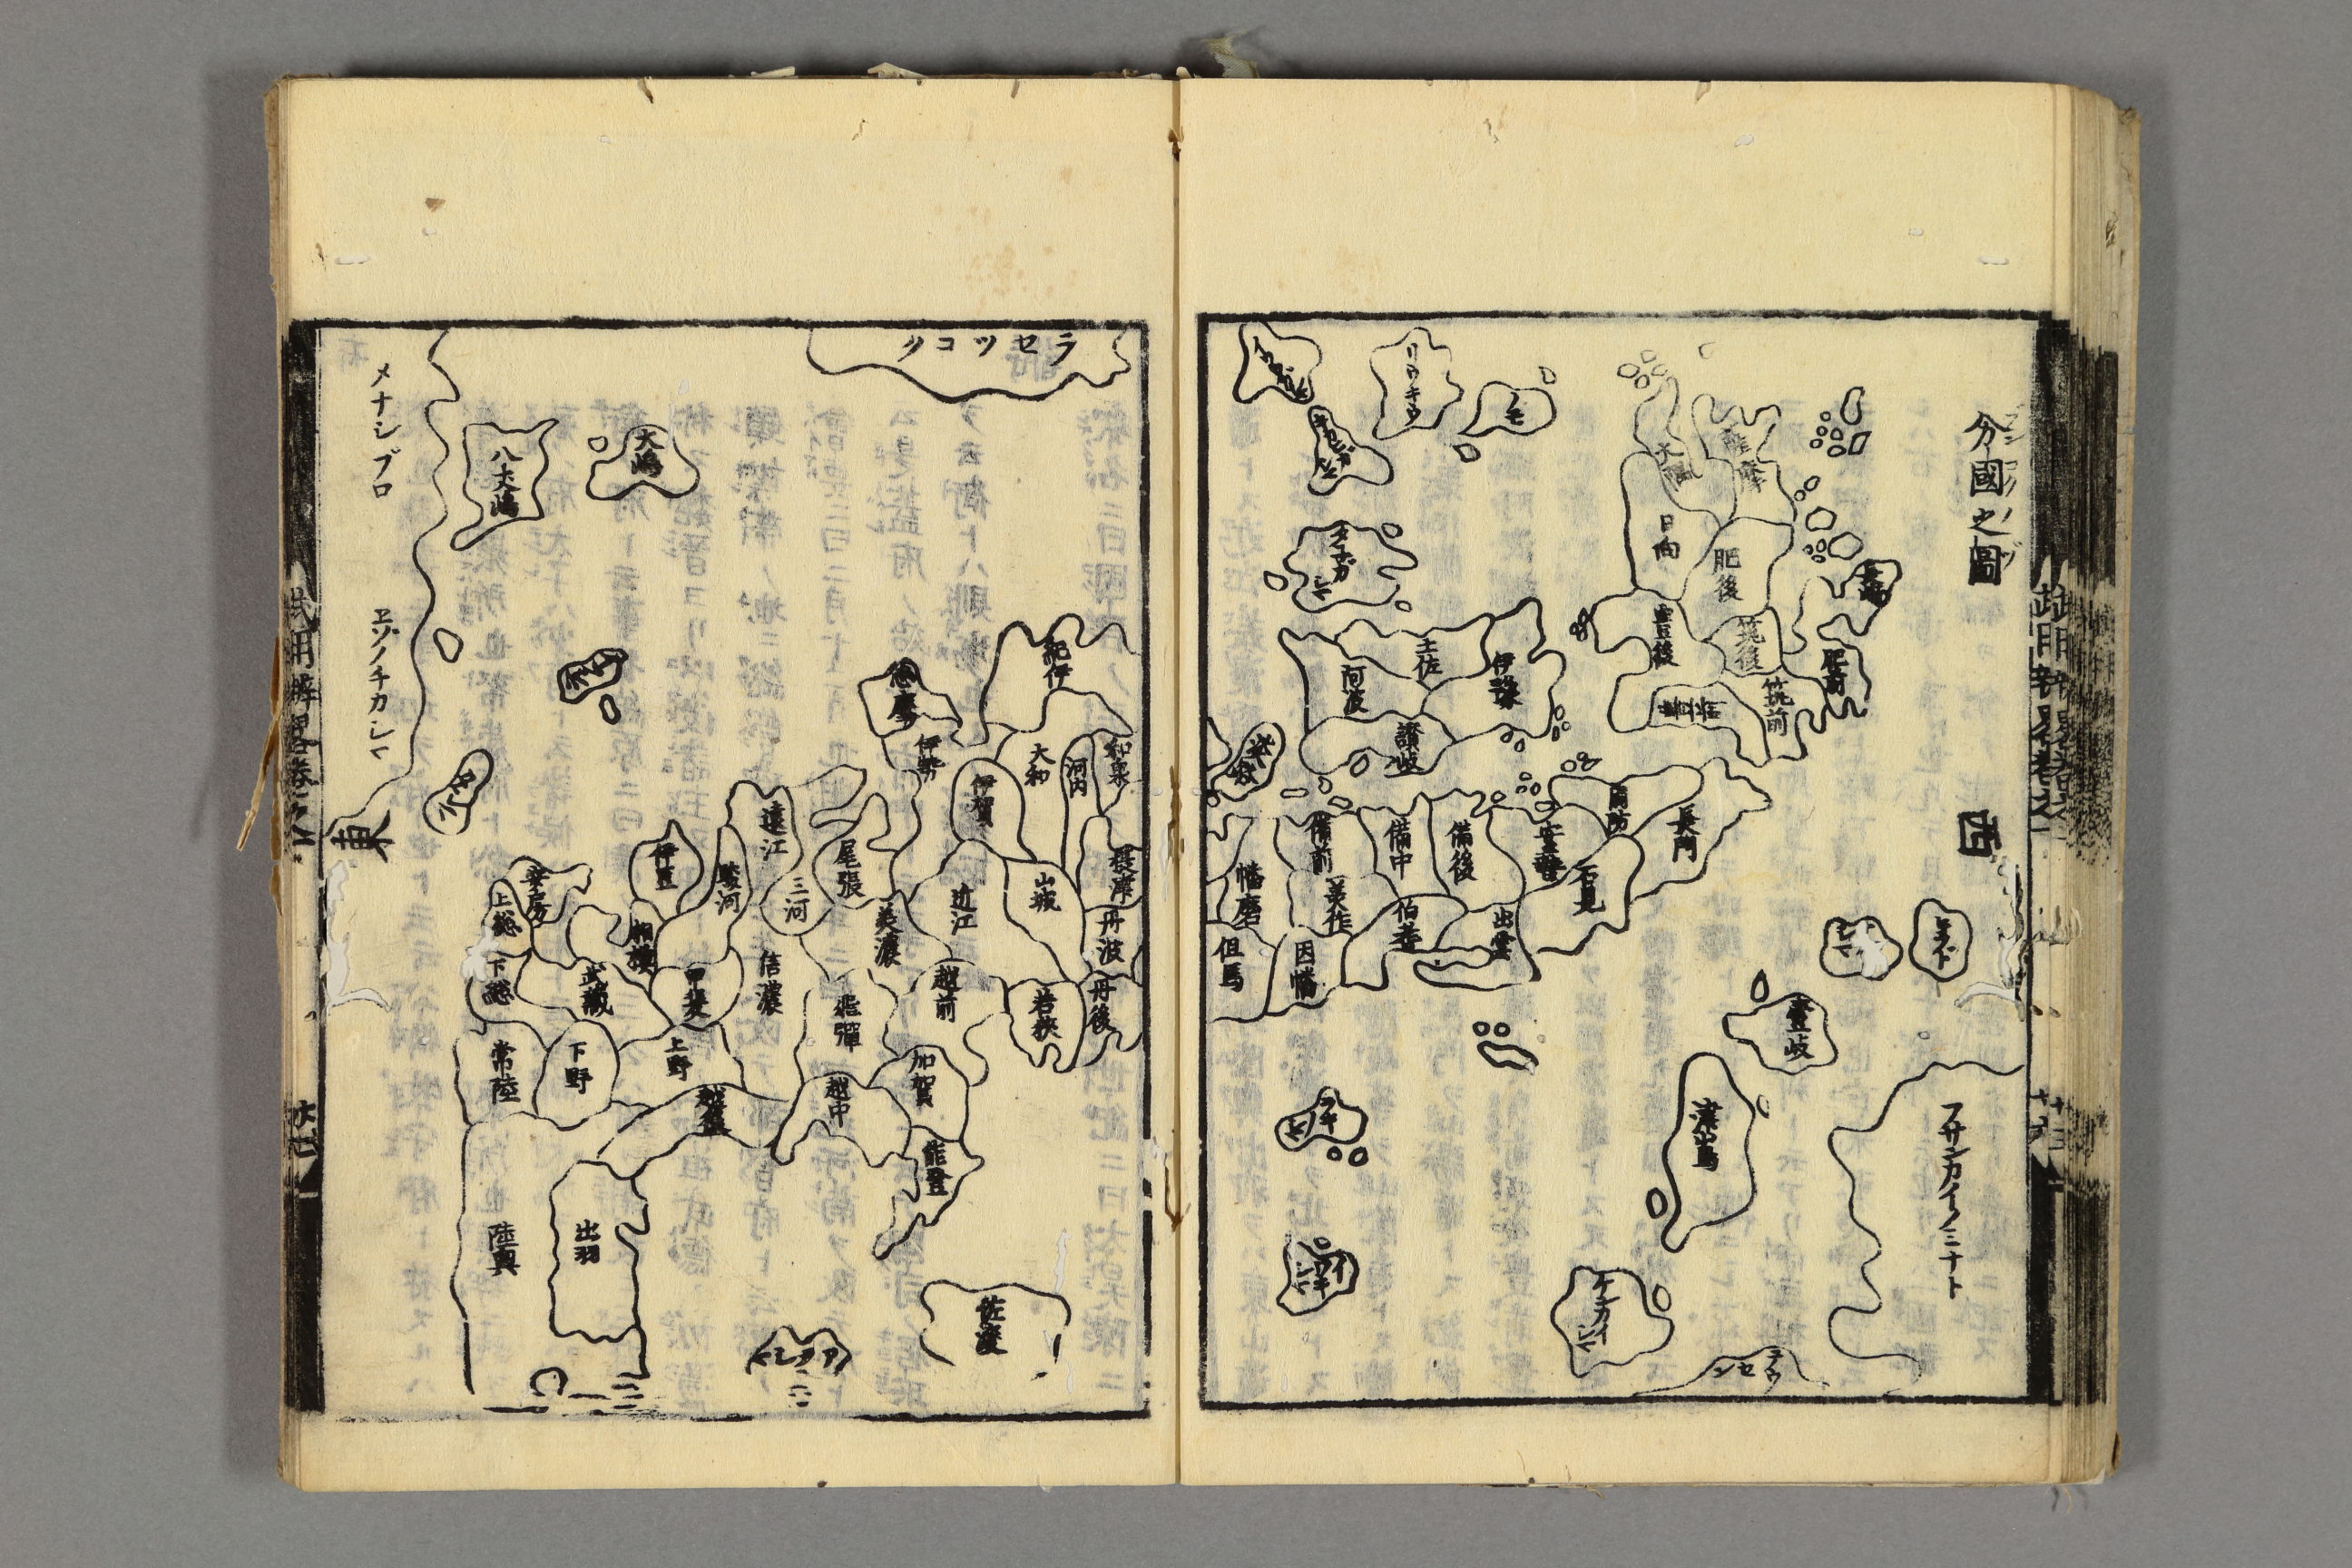 分國之圖
西
薩摩
大隅
日向
肥後
豊後
筑後
肥前
筑前
土佐
伊豫
阿波
讃岐
リウキウ
長門
周防
石見
安藝
備後
備中
備前
美作
伯耆
出雲
因幡
幡磨
但馬
壹岐
津嶋
フサンカイノミナト
ラセツコク
大嶋
八丈嶋
メナシブロ
ヱゾノチカシマ
東
紀伊
志摩
伊勢
大和
河内
和泉
伊賀
摂津
丹波
丹後
山城
近江
若狭
越前
美濃
尾張
三河
遠江
駿河
伊豆
相模
甲斐
信濃
飛彈
加賀
能登
越中
越後
上野
下野
武藏
安房
上総
下総
常陸
陸奥
出羽
佐渡